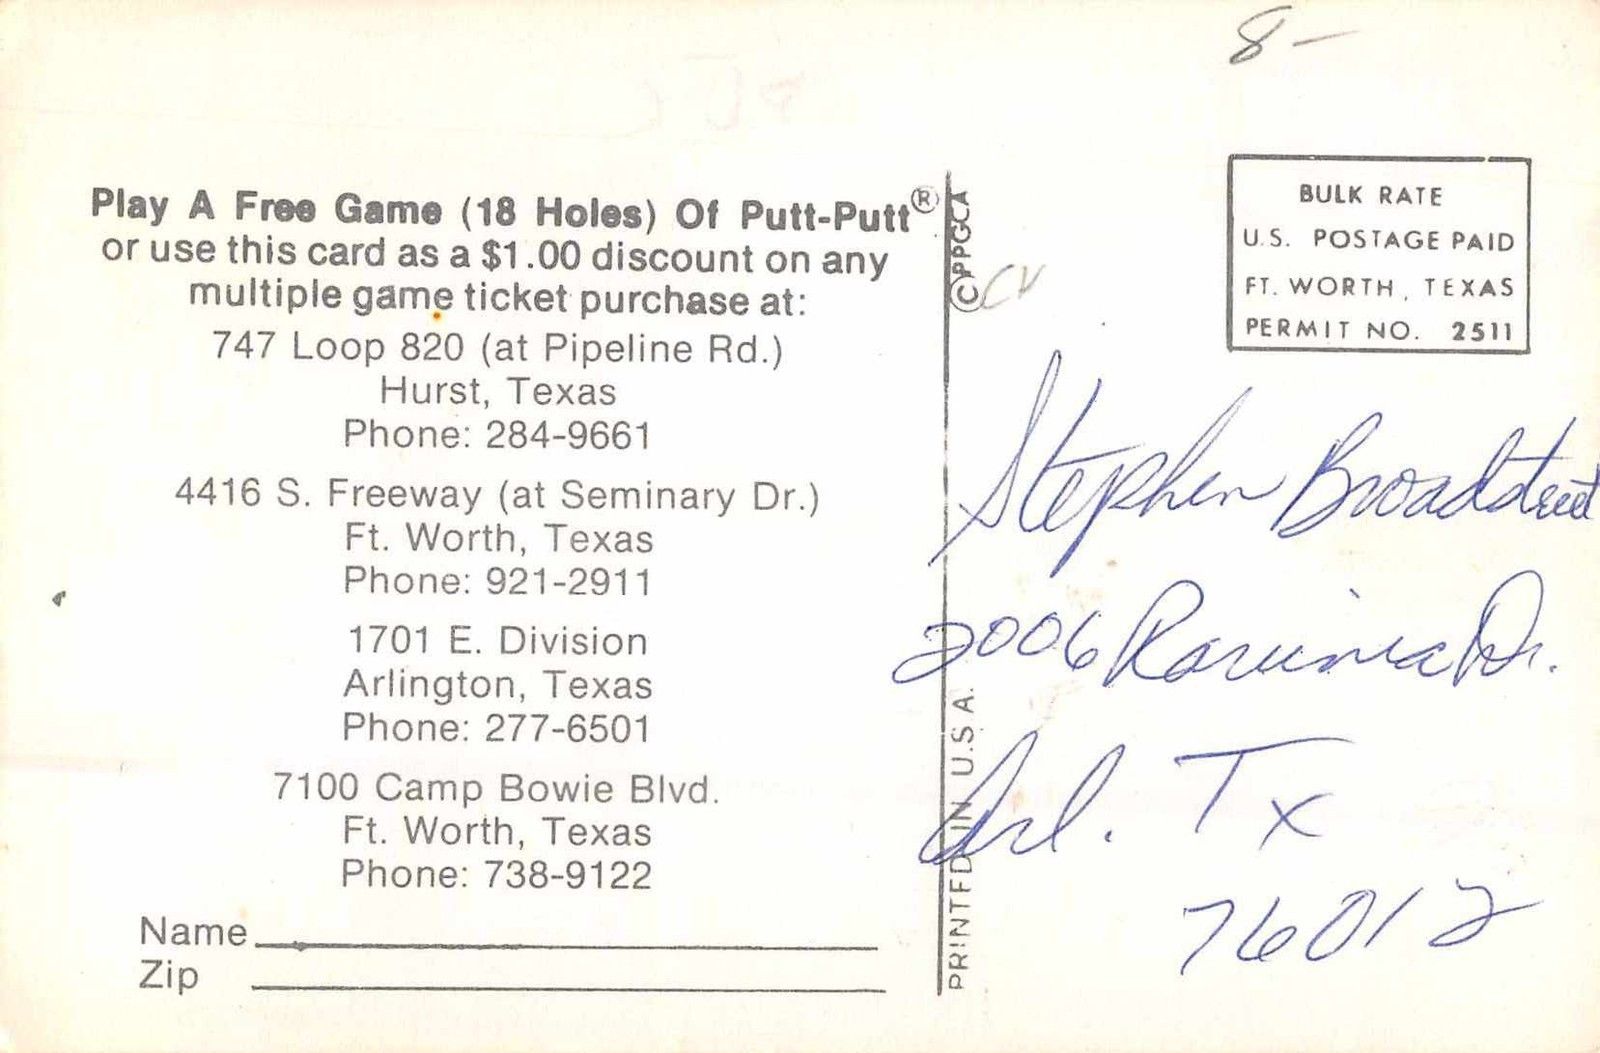 8-
Play A Free Game (18 Holes) Of Putt-Putt®
or use this card as a $1.00 discount on any
multiple game ticket purchase at:
747 Loop 820 (at Pipeline Rd.)
Hurst, Texas
Phone: 284-9661
4416 S. Freeway (at Seminary Dr.)
Ft. Worth, Texas
Phone: 921-2911
1701 E. Division
Arlington, Texas
Phone: 277-6501
7100 Camp Bowie Blvd.
Ft. Worth, Texas
Phone: 738-9122
Name
Zip
©PPGCA
CV
PRINTED IN U.S.A.
BULK RATE
U.S. POSTAGE PAID
FT. WORTH, TEXAS
PERMIT NO. 2511
Stephen Broadstreet
2006 Ravinia Dr.
Arl. Tx
76012